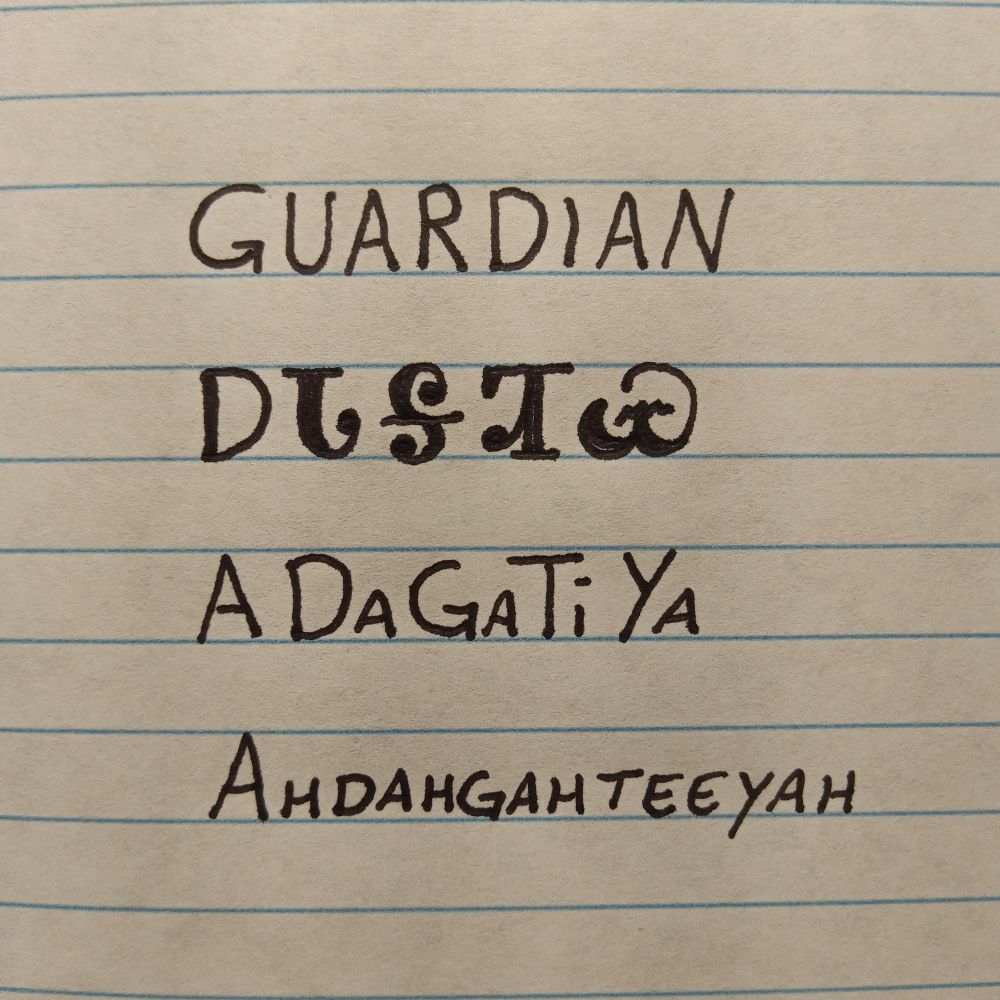 GUARDIAN
ᎠᏓᎦᏘᏯ
ADAGATIYA
AHDAHGAHTEEYAH